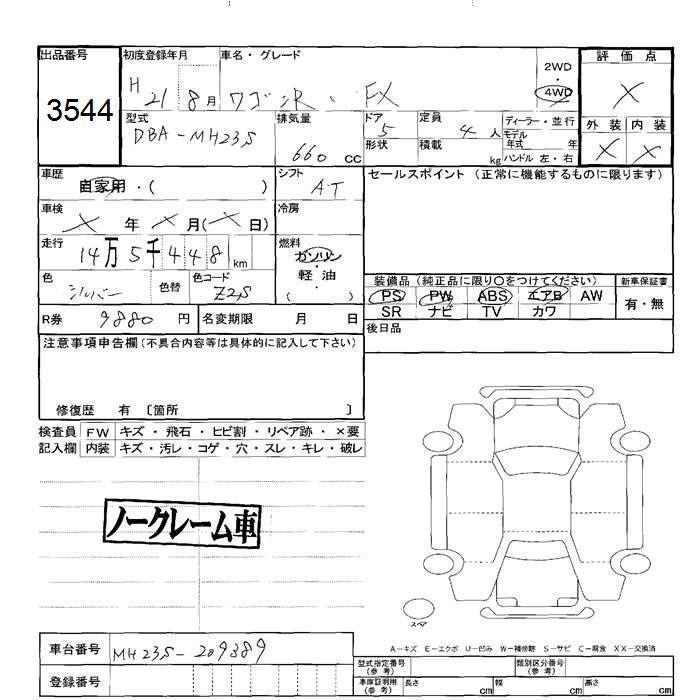 出品番号 初度登録年月 車名・グレード 2WD・4WD 評価点
3544 H 21 8月 ワゴンR・FX X
型式 排気量 ドア 定員 ディーラー・並行 外装 内装
DBA-MH23S 660 CC 5 4人 モデル年式 年 X X
形状 積載 kg ハンドル 左・右
車歴 シフト セールスポイント (正常に機能するものに限ります)
自家用・( ) AT
車検 冷房
X年 X月(X日)
走行 燃料
14万5千448km ガソリン・軽油
( )
色 色替 色コード 装備品 (純正品に限り○をつけてください) 新車保証書
シルバー Z2S PS PW ABS エアB AW 有・無
SR ナビ TV カワ
R券 9880円 名変期限 月 日 後日品
注意事項申告欄(不具合内容等は具体的に記入して下さい)
修復歴 有 〔箇所 〕
検査員 FW キズ・飛石・ヒビ割・リペア跡・×要
記入欄 内装 キズ・汚レ・コゲ・穴・スレ・キレ・破レ
ノークレーム車
スペア
A-キズ E-エクボ U-凹み W-補修跡 S-サビ C-腐食 XX-交換済
車台番号 MH23S-209389 型式指定番号(参考) 類別区分番号(参考)
登録番号 車庫証明用(参考) 長さ cm 幅 cm 高さ cm